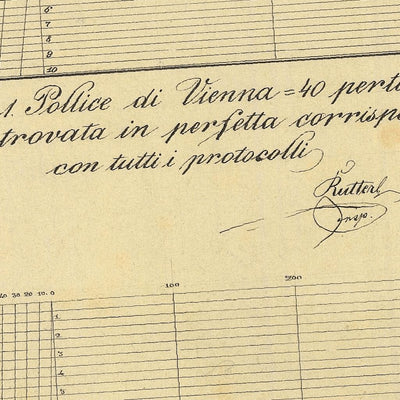 6
7
8
9
10
1. Pollice di Vienna = 40 perti
trovata in perfetta corrispo
con tutti i protocolli
insp.
40 30 20 10. 0 100 200
1
2
3
4
5